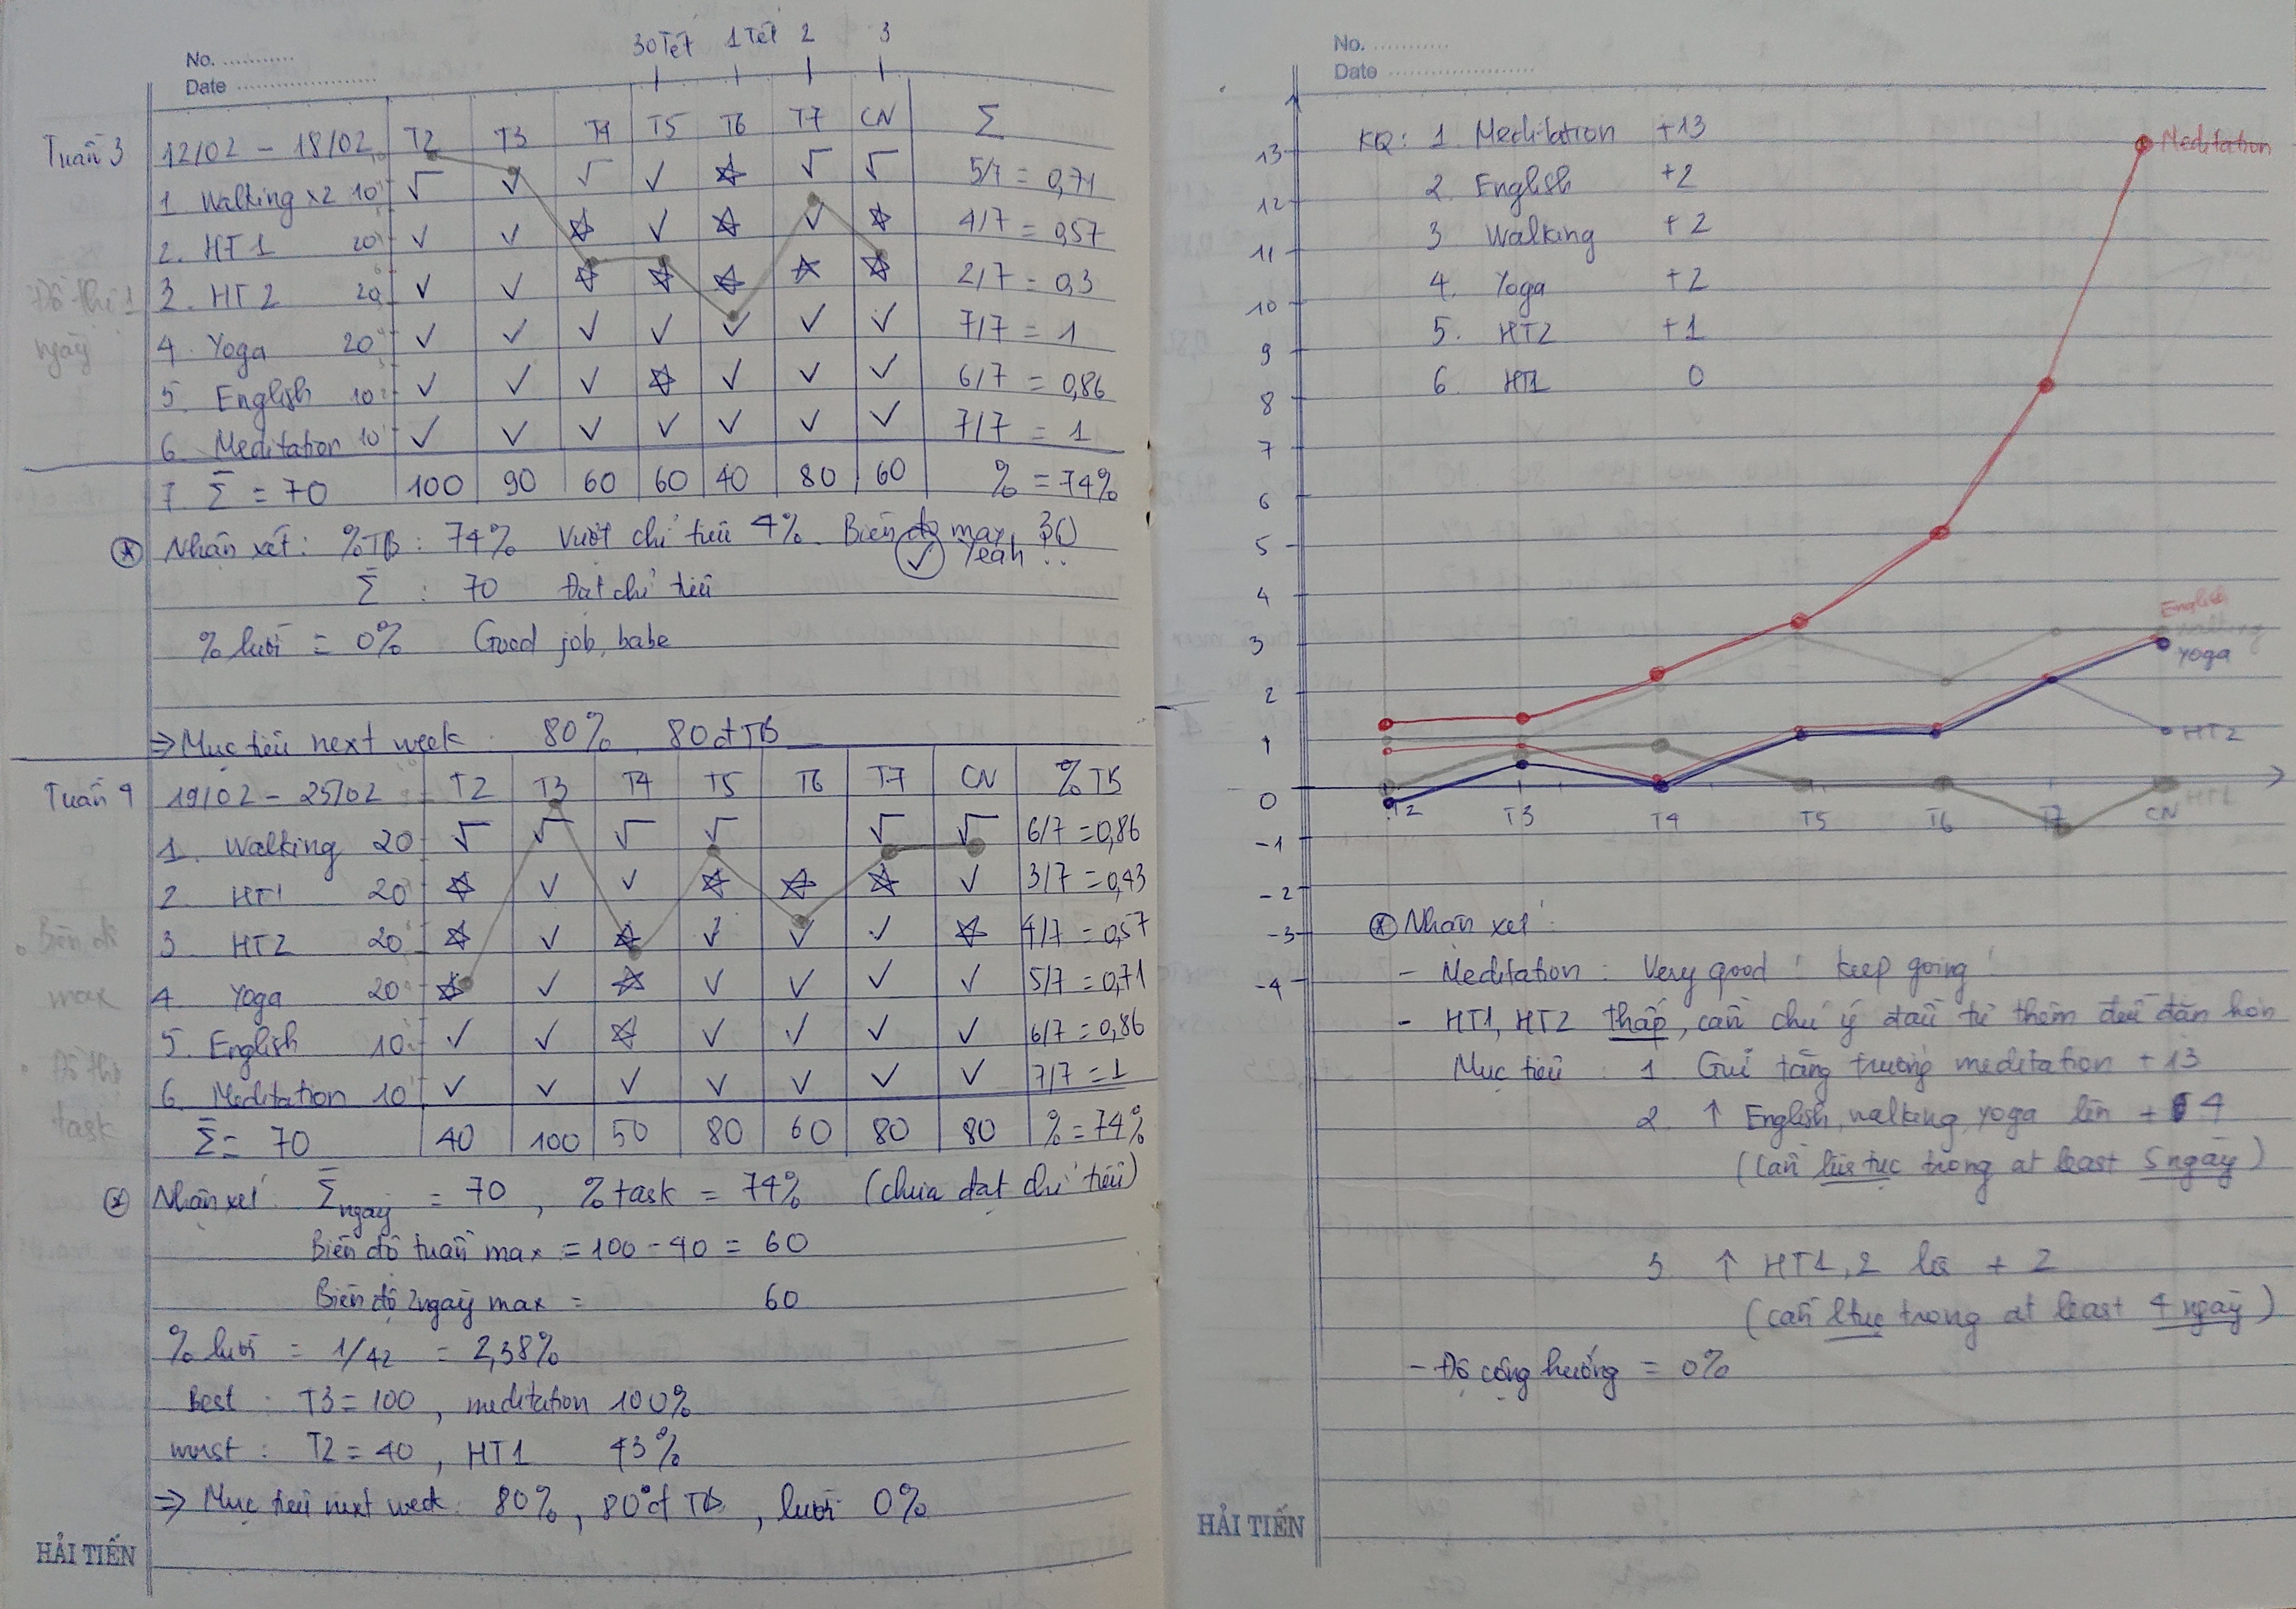 30 Tết 1 Tết 2 3
No. ..........
Date ....................
Tuần 3 12/02 - 18/02 T2 T3 T4 T5 T6 T7 CN Σ
1 Walking x2 10 √ √ √ ✓ ☆ √ √ 5/7 = 0,71
2. HT1 20 ✓ ✓ ☆ ✓ ☆ ✓ ☆ 4/7 = 0,57
3. HT2 20 ✓ ✓ ☆ ☆ ☆ ☆ ☆ 2/7 = 0,3
Đồ thị 1
ngày
4. Yoga 20 ✓ ✓ ✓ ✓ ✓ ✓ ✓ 7/7 = 1
5. English 10 ✓ ✓ ✓ ☆ ✓ ✓ ✓ 6/7 = 0,86
6. Meditation 10 ✓ ✓ ✓ ✓ ✓ ✓ ✓ 7/7 = 1
7. Σ̄ = 70 100 90 60 60 40 80 60 % = 74%
⊛ Nhận xét: %TB: 74% Vượt chỉ tiêu 4%. Biên độ max 30
✓ Yeah ..
Σ̄ : 70 Đạt chỉ tiêu
% lười = 0% Good job, babe
⇒ Mục tiêu next week: 80%, 80đ TB
Tuần 4 19/02 - 25/02 T2 T3 T4 T5 T6 T7 CN %TB
1. Walking 20 √ √ √ √ √ √ 6/7 = 0,86
2. HT1 20 ☆ ✓ ✓ ☆ ☆ ☆ ✓ 3/7 = 0,43
3. HT2 20 ☆ ✓ ☆ ✓ ✓ ✓ ☆ 4/7 = 0,57
4. Yoga 20 ☆ ✓ ☆ ✓ ✓ ✓ ✓ 5/7 = 0,71
5. English 10 ✓ ✓ ☆ ✓ ✓ ✓ ✓ 6/7 = 0,86
6. Meditation 10 ✓ ✓ ✓ ✓ ✓ ✓ ✓ 7/7 = 1
Biên độ
max
Đồ thị
task
Σ̄ = 70 40 100 50 80 60 80 80 % = 74%
⊛ Nhận xét: Σ̄ ngày = 70, % task = 74% (chưa đạt chỉ tiêu)
Biên độ tuần max = 100 - 40 = 60
Biên độ 2 ngày max = 60
% lười = 1/42 = 2,38%
Best : T3 = 100, meditation 100%
worst : T2 = 40, HT1 43%
⇒ Mục tiêu next week: 80%, 80đ TB, lười 0%
HẢI TIẾN
No. ..........
Date ....................
KQ: 1. Meditation +13
2. English +2
3 Walking +2
4. Yoga +2
5. HT2 +1
6. HT1 0
13
12
11
10
9
8
7
6
5
4
3
2
1
0
-1
-2
-3
-4
Meditation
English
Walking
Yoga
HT2
HT1
T2 T3 T4 T5 T6 T7 CN
⊛ Nhận xét:
- Meditation: Very good! keep going!
- HT1, HT2 thấp, cần chú ý đầu tư thêm đều đặn hơn
Mục tiêu : 1 Giữ tăng trưởng meditation +13
2. ↑ English, walking, yoga lên + 4
(Cần liên tục trong at least 5 ngày)
3 ↑ HT1, 2 là + 2
(cần ltục trong at least 4 ngày)
- Độ cộng hưởng = 0%
HẢI TIẾN